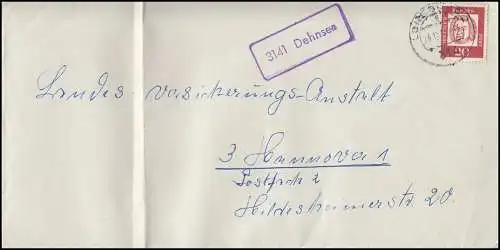 3141 Dehnsen
20
Landes-Versicherungs-Anstalt
3 Hannover 1
Postfach 2
Hildesheimerstr. 20.